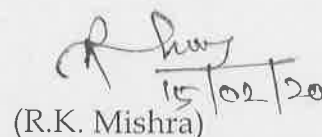 15/02/20
(R.K. Mishra)